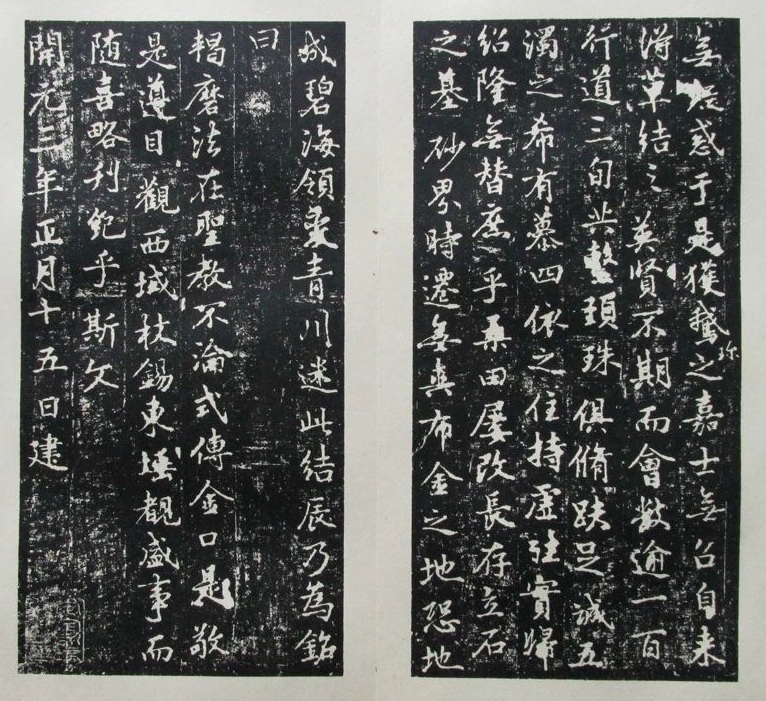 無 惑于是獲鵝珎之嘉士無召自来
得草結之英賢不期而會數逾一百
行道三旬共整頂珠俱脩跌足誠五
濁之希有慕四依之住持虛往實歸
紹隆無替庶乎桑田屢改長存立石
之墓砂界時遷無虧布金之地恐地
城碧海領 青川述此結辰乃為銘
曰
朅磨法在聖教不淪式傳金口是敬
是遵目觀西域杖錫東 覩盛事而
随喜略刋範乎斯文
開元二年正月十五日建